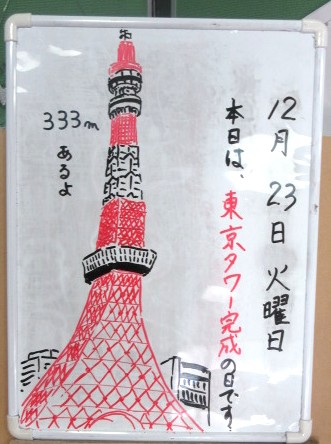 12月23日火曜日
本日は、東京タワー完成の日です。
333m
あるよ